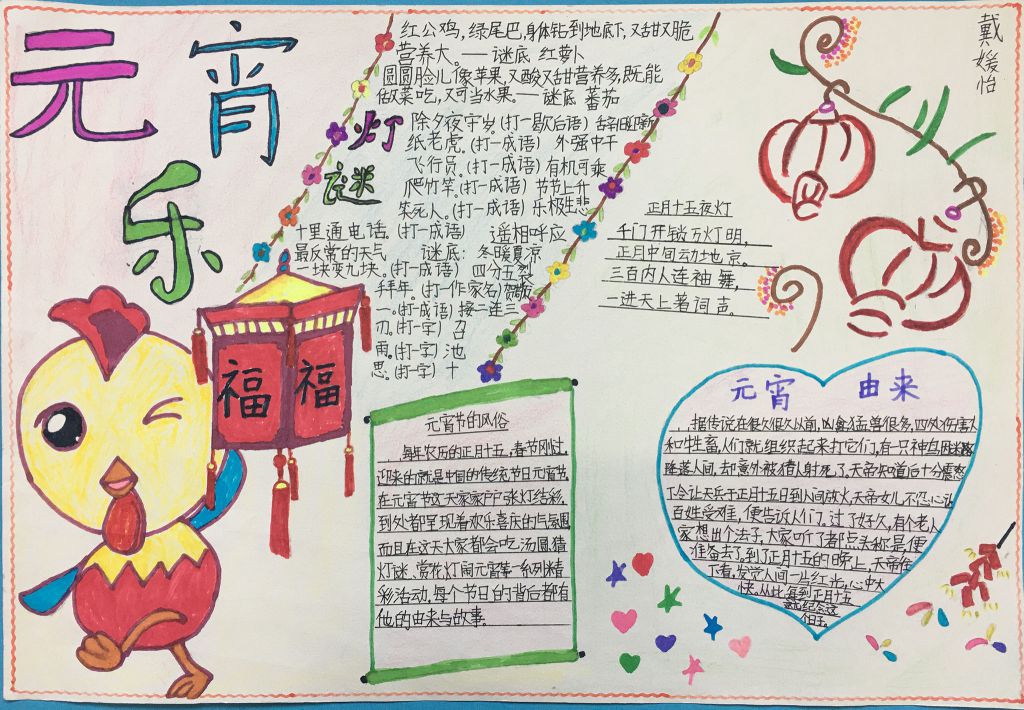 元宵
乐
戴媛怡
灯
谜
红公鸡,绿尾巴,身体钻到地底下,又甜又脆
营养大。——谜底 红萝卜
圆圆脸儿像苹果,又酸又甜营养多,既能
做菜吃,又可当水果。——谜底 蕃茄
除夕夜守岁。(打一歇后语) 辞旧迎新
纸老虎。(打一成语) 外强中干
飞行员。(打一成语) 有机可乘
爬竹竿。(打一成语) 节节上升
笑死人。(打一成语) 乐极生悲
十里通电话 (打一成语) 遥相呼应
最反常的天气 谜底: 冬暖夏凉
一块变九块。(打一成语) 四分五裂
拜年。(打一作家名)
一。(打一成语) 接二连三
刃。(打一字) 召
雨。(打一字) 池
思。(打一字) 十
正月十五夜灯
千门开锁万灯明,
正月中间动地京。
三百内人连袖舞,
一进天上著词声。
元宵节的风俗
每年农历的正月十五,春节刚过,
迎来的就是中国的传统节日元宵节。
在元宵节这天家家户户张灯结彩,
到处都呈现着欢乐喜庆的气氛,
而且在这天大家都会吃汤圆,猜
灯谜、赏花灯闹元宵等一系列精
彩活动,每个节日的背后都有
他的由来与故事。
福 福
元宵 由来
据传说在很久很久以前,凶禽猛兽很多,四处伤害人
和牲畜,人们就组织起来打它们,有一只神鸟因迷路
降落人间,却意外被猎人射死了,天帝知道后十分震怒
了令让天兵于正月十五日到人间放火,天帝女儿不忍心让
百姓受难,便告诉人们了。过了好久,有个老人
家想出个法子,大家听了都点头称是,便
准备去了,到了正月十五的晚上,天帝往
下看,发觉人间一片红光,心中大
快。从此每到正月十五